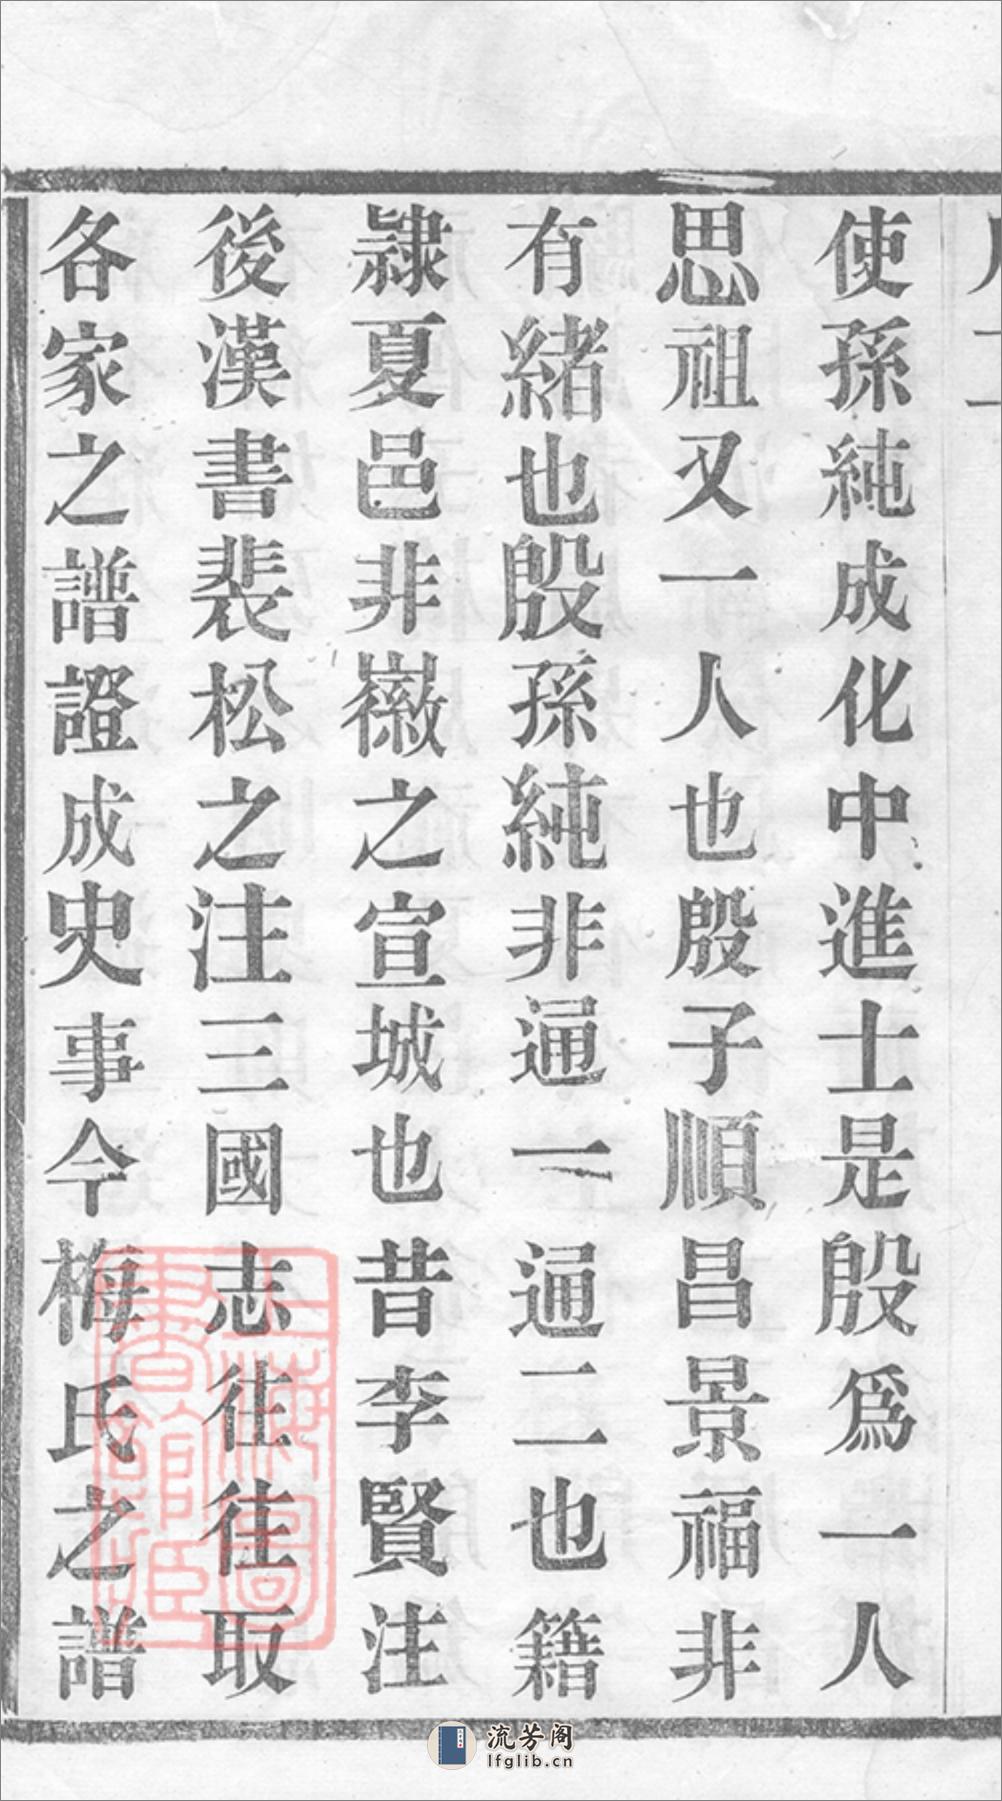 使孫純成化中進士是殷爲一人
思祖又一人也殷子順昌景福非
有緒也殷孫純非通一通二也籍
隸夏邑非徽之宣城也昔李賢注
後漢書裴松之注三國志往往取
各家之譜證成史事今梅氏之譜
上海圖書館藏
流芳阁
lfglib.cn